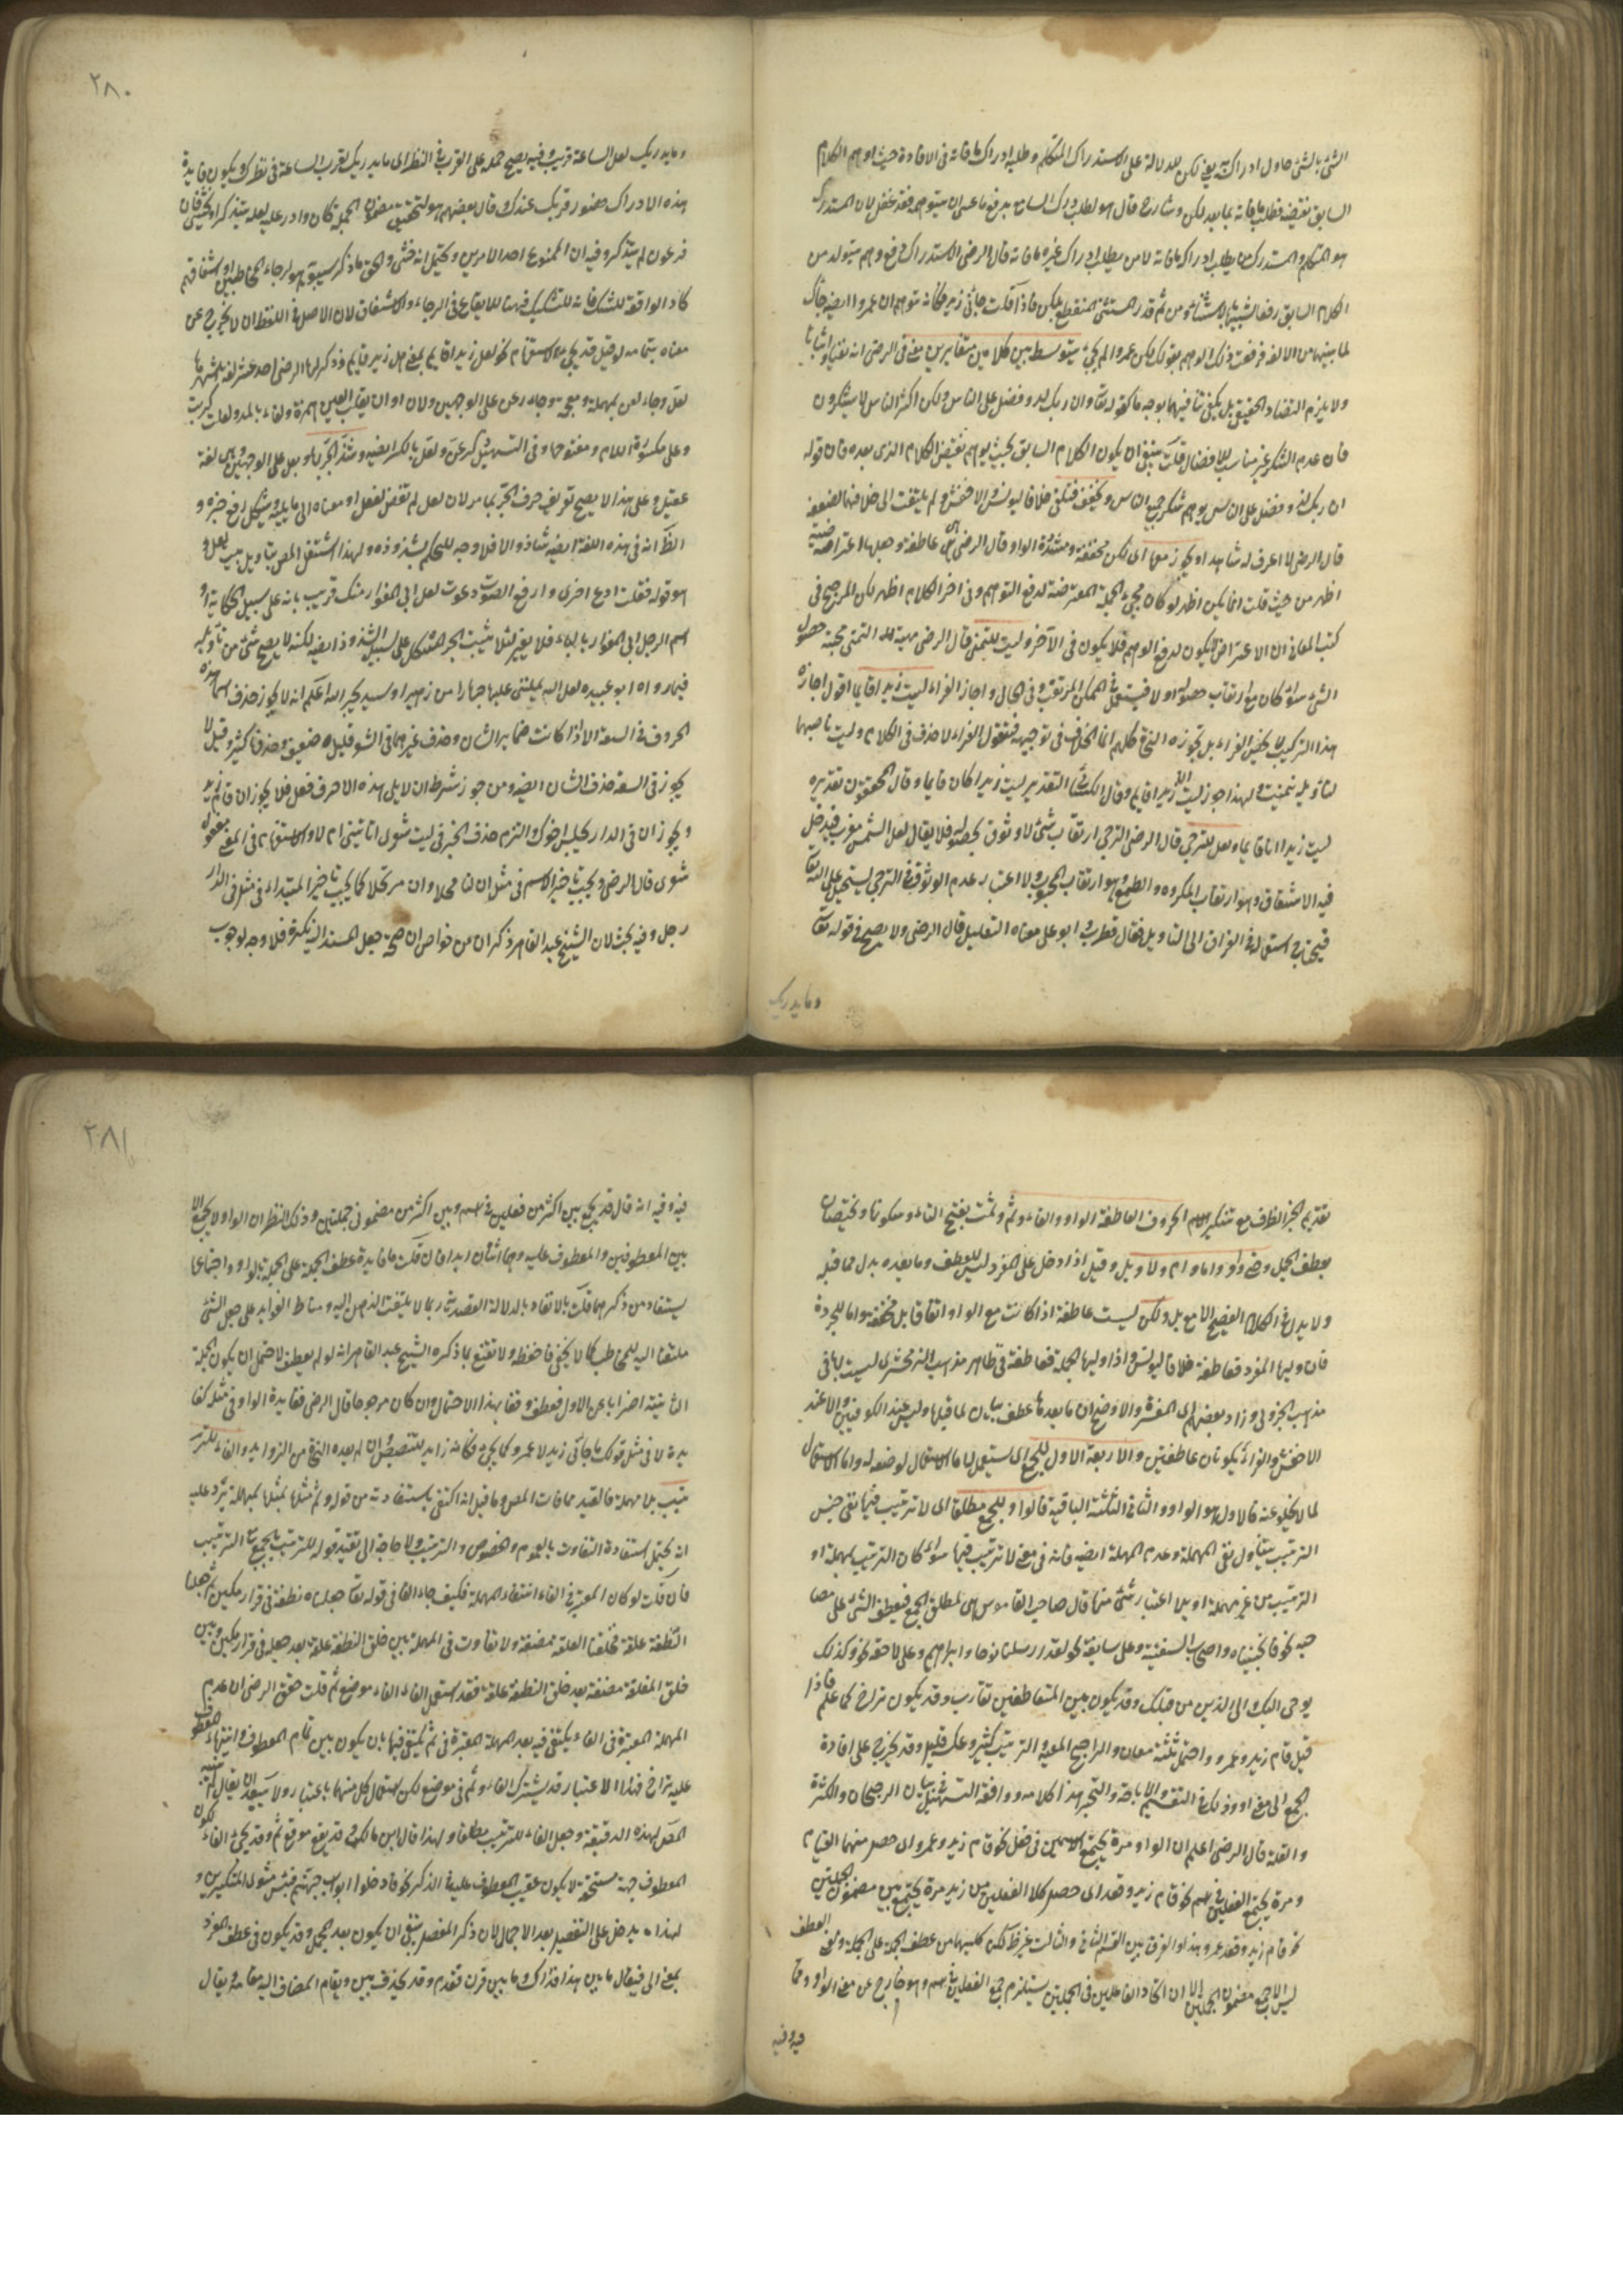 الشئ بالشئ حاول ادراك به يعني لكن للدلالة على الاستدراك المتكلم وطلبه ادراك ما فاته في الافادة حيث اوهم الكلام
السابق نقيضه فطلب ما فاته بما بعد لكن وشارح قال هو لطلب درك السامع بدفع ما عسى ان يتوهمه فقد غفل لان المستدرك
هو المتكلم والمستدرك من يطلب ادراك ما فاته لا من يطلب ادراك غيره ما فاته قال الرضي الاستدراك رفع وهم يتولد من
الكلام السابق رفعا شبيها بالاستثناء ومن ثم قدر المستثنى المنقطع بلكن فاذا قلت جاءني زيد فكأنه توهم ان عمروا ايضا جاءك
لما بينهما من الالفة فرفعت ذلك الوهم بقولك لكن عمروا لم يجئ يتوسط بين كلامين متغايرين معنى في الرضي انه نفيا واثباتا
ولا يلزم التضاد الحقيقي بل يكفي تنافيهما بوجه ما كقوله تعالى وان ربك لذو فضل على الناس ولكن اكثر الناس لا يشكرون
فان عدم الشكر غير مناسب للافضال قلت ينبغي ان يكون الكلام السابق بحيث يوهم نقيض الكلام الذي بعده فان قوله
ان ربك لذو فضل على الناس يوهم شكر جميع الناس ويخفف فتلغى خلافا ليونس والاخفش ولم يلتفت الى خلافهما لضعفه
قال الرضي لا اعرف له شاهدا ويجوز معها اى لكن مخففة ومشددة الواو وقال الرضي هي عاطفة وجعلها اعتراضية
اظهر من حيث قلت انما يكون اظهر لو كان مجئ الجملة المعترضة لدفع التوهم وفي اخر الكلام اظهر لكن المرجح في
كتب المعاني ان الاعتراض لا يكون لدفع الوهم فلا يكون في الآخر وليت للتمني قال الرضي مهية التمني محبة حصول
الشئ سواء كان مع ارتقاب حصوله اولا فيستعمل في الممكن المترقب وفي المحال واجاز الفراء ليت زيدا قايما اقول اجازة
هذا التركيب لا يخص الفراء بل يجوزه النحاة كلهم انما الخلاف في توجيهه فتقول الفراء لا حذف في الكلام وليت ناصبهما
لتأويله بتمنيت ولهذا جوز ليت ان زيدا قايم وقال الكسائي التقدير ليت زيدا كان قايما وقال المحققون تقديره
ليت زيدا لنا قايما ولعل للترجي قال الرضي الترجي ارتقاب شئ لا وثوق بحصوله فلا يقال لعل الشمس تغرب فيدخل
فيه الاشفاق وهو ارتقاب المكروه والطمع وهو ارتقاب المحبوب ولا اعتبار عدم الوثوق في الترجي يستحيل على الله تعالى
فيحتاج استعماله في القران الى التأويل فقال قطرب وابو على معناه التعليل قال الرضي ولا يصح في قوله تعالى
وما يدريك
٢٨٠
وما يدريك لعل الساعة قريب وفيه يصح حمله على القرب في النظر الى ما يدريك بقرب الساعة في نظرك ويكون فايدة
هذه الادراك حضور قربك عندك وقال بعضهم هو لتحقيق مضمون الجملة كان وادر عليه لعله يتذكر او يخشى فان
فرعون لم يتذكر وفيه ان الممنوع احد الامرين ويحتمل انه خشي والحق ما ذكر سيبويه هو لرجاء المخاطب او اشفاقه
كاد الواقعة للشك فانه للتشكيك فههنا للايقاع في الرجاء والاشفاق لان الاصل في اللفظ ان لا يخرج عن
معناه بتمامه لو قيل قد يجئ للاستفهام نحو لعل زيدا قايم بمعنى هل زيد قايم وذكر لها الرضي احد عشر لغة اشهرها
لعل وجاء لعن بمهملة ومعجمة وجاء رعن على الوجهين ولان وان بقلب العين همزة ولعاء بالمد ولعلت كربت
وعل مكسورة اللام ومفتوحها وفي التسهيل كرعن ولعل بالكسر ايضا وشذ الجر بها وبعل على الوجهين هي لغة
عقيل وعلى هذا لا يصح تعريف حرف الجر بما مر لان لعل لم تفض لفعل او معناه الى ما يليه ويشكل رفع خبره و
الظاهر انه في هذه اللغة ايضا شاذ والا فلا وجه للحكم بشذوذه ولهذا اشتغل المص بتأويل بيت لعل و
هو قوله فقلت ادع اخرى وارفع الصوت دعوة لعل ابي المغوار منك قريب بانه على سبيل الحكاية او
اسم الرجل ابي المغوار بالياء فلا يغير لئلا يثبت الجر المشكل على سبيل الشذوذ ايضا لكنه لا يصح شئ من تأويله
فيما رواه ابو عبيدة لعل الله يمكنني عليها جهارا من زهير او اسيد بجر الله اعلم انه لا يجوز حذف اسماء هذه
الحروف في السعة الا اذا كانت ضماير الشان وحذف غيرها في الشعر قليل ضعيف وحذفها كثير وقيل لا
يجوز في السعة حذف الشان ايضا ومن جوز شرط ان لا يلي هذه الاحرف فعل فلا يجوز ان قام زيد
ويجوز ان في الدار يجلس اخوك والتزم حذف الخبر في ليت شعري اتأتيني ام لا والاستفهام في المعنى مفعول
شعري قال الرضي ويجب تأخير الاسم في مثل ان لنا محلا وان مرتحلا كما يجب تأخير المبتداء في مثل في الدار
رجل وفيه بحث لان الشيخ عبد القاهر ذكر ان من خواص ان صحة جعل المسند اليه نكرة فلا وجه لوجوب
تقديم الخبر الظرف مع تنكير الاسم الحروف العاطفة الواو والفاء وثم وثمت بفتح التاء وسكونها ويختصان
بعطف الجمل وحتى واو واما وام ولا وبل وقيل اذا دخل على المفرد ليس للعطف وما بعده بدل مما قبله
ولا يبدل في الكلام الفصيح الا مع بل ولكن ليست عاطفة اذا كانت مع الواو اتفاقا بل مخففة واما المجردة
فان وليها المفرد فعاطفة خلافا ليونس واذا وليها الجملة فعاطفة في ظاهر مذهب الزمخشري ليست لها في
مذهب الجزولي وزاد بعضهم اى المفسرة والاوضح ان ما بعدها عطف بيان لما قبلها وليس عند الكوفيين والا عند
الاخفش والفراء يكونان عاطفتين والاربعة الاول للجمع اى يستعمل لها الاستعمال لوضعه له واما الاستعمال
لما لا يخلو عنه فالاول هو الواو والثاني الثلثة الباقية فالواو للجمع مطلقا اى لا ترتيب فيها نفي جنس
الترتيب يتناول نفي المهملة وعدم المهملة ايضا فانه في معنى لا ترتيب فيها سواء كان الترتيب بمهملة او
الترتيب من غير مهملة او بلا اعتبار شئ منهما قال صاحب القاموس هي لمطلق الجمع فيعطف الشئ على مصا
حبه نحو فانجيناه واصحاب السفينة وعلى سابقه نحو لقد ارسلنا نوحا وابراهيم وعلى لاحقه نحو كذلك
يوحى اليك والى الذين من قبلك وقد يكون بين المتعاطفين تقارب وقد يكون تراخ كما علم فاذا
قيل قام زيد وعمرو واحتمل ثلثة معان والراجح المعية والترتيب كثير وعكسه قليل وقد يخرج على افادة
الجمع الى معنى او وذلك في التقسيم والاباحة والتخيير هذا كلامه ووافقه التسهيل في بيان الرجحان والكثرة
والقلة قال الرضي اعلم ان الواو مرة يجمع الاسمين في فعل نحو قام زيد وعمرو اى حصل منهما القيام
ومرة يجمع الفعلين في اسم نحو قام زيد وقعد اى حصل كلا الفعلين من زيد مرة يجمع بين مضموني الجملتين
نحو قام زيد وقعد عمرو هذا والفرق بين القسم الثاني والثالث غير ظ لكن كليهما من عطف الجملة على الجملة وفي العطف
ليس الا جمع مضموني الجملتين الا ان اتحاد الفاعلين في الجملتين يستلزم جمع الفعلين في اسم وهو خارج عن معنى الواو ومما
فيه وفيه
٢٨١
فيه وفيه انه قال قد يجمع بين اكثر من فعلين في اسم وبين اكثر من مضموني جملتين وذلك النظر ان الواو لا يجمع الا
بين المعطوفين والمعطوف عليه وهما اثنان ابدا فان قلت ما فايدة عطف الجملة على الجملة بالواو واجتماعها
يستفاد من ذكرهما قلت بالاتفاد بالدلالة القصدية ربما لا يلتفت الذهن اليه ومناط الفوايد على جعل الشئ
ملتفتا اليه للمخاطب كما لا يخفى فاحفظه ولا تقتنع بما ذكره الشيخ عبد القاهر انه لو لم يعطف لاحتمل ان يكون الجملة
الثانية اضرابا عن الاول فعطف دفعا لهذا الاحتمال وان كان مرجوحا قال الرضي فقايدة الواو في مثله كفا
يدة لا في مثل قولك ما جاءني زيد لا عمرو كما يجئ فكأنه زايد للتنصيص وان لم يعده النحاة من الزوايد والفاء للتر
تيب بلا مهملة فالقيد مما فات المص وما قيل انه اكتفى باستفادته من قوله وثم مثلها بمهملة يرد عليه
انه يحتمل استفادة التفاوت بالعموم والخصوص والترتيب ولا حاجة الى تقييد قوله للترتيب بالجمع مع الترتيب
فان قلت لو كان المعتبر في الفاء انتفاء المهملة فكيف جاء الفاء في قوله تعالى جعلناه نطفة في قرار مكين ثم خلقنا
النطفة علقة فخلقنا العلقة مضغة ولا تفاوت في المهملة بين خلق النطفة علقة بعد جعله في قرار مكين وبين
خلق العلقة مضغة بعد خلق النطفة علقة فقد استعمل الفاء الفاء موضع ثم قلت حقق الرضي ان عدم
المهملة المعتبرة في الفاء ويكتفى فيه بعد المهملة المعتبرة في ثم يكتفى فيها بان يكون بين تمام المعطوف وانتهاء المعطوف
عليه تراخ فهذا الاعتبار قد يشترك الفاء وثم في موضع لكن استعمال كل منهما باعتبار ولا يبعد ان يقال لم يتنبه
المص لهذه الدقيقة وجعل الفاء للترتيب مطلقا ولهذا قال ابن مالك وقد يقع موقع ثم وقد يجئ الفاء لكون
المعطوف جهة مستحقة لا يكون عقيب المعطوف عليه في الذكر نحو فادخلوا ابواب جهنم فبئس مثوى المتكبرين و
لهذا يدخل على التفصيل بعد الاجمال لان ذكر المفصل ينبغي ان يكون بعد المجمل وقد يكون في عطف المفرد
بمعنى الى فيقال ما بين هذا فذاك وما بين قرن فقدم وقد يحذف بين ويقام المضاف اليه مقامه ويقال